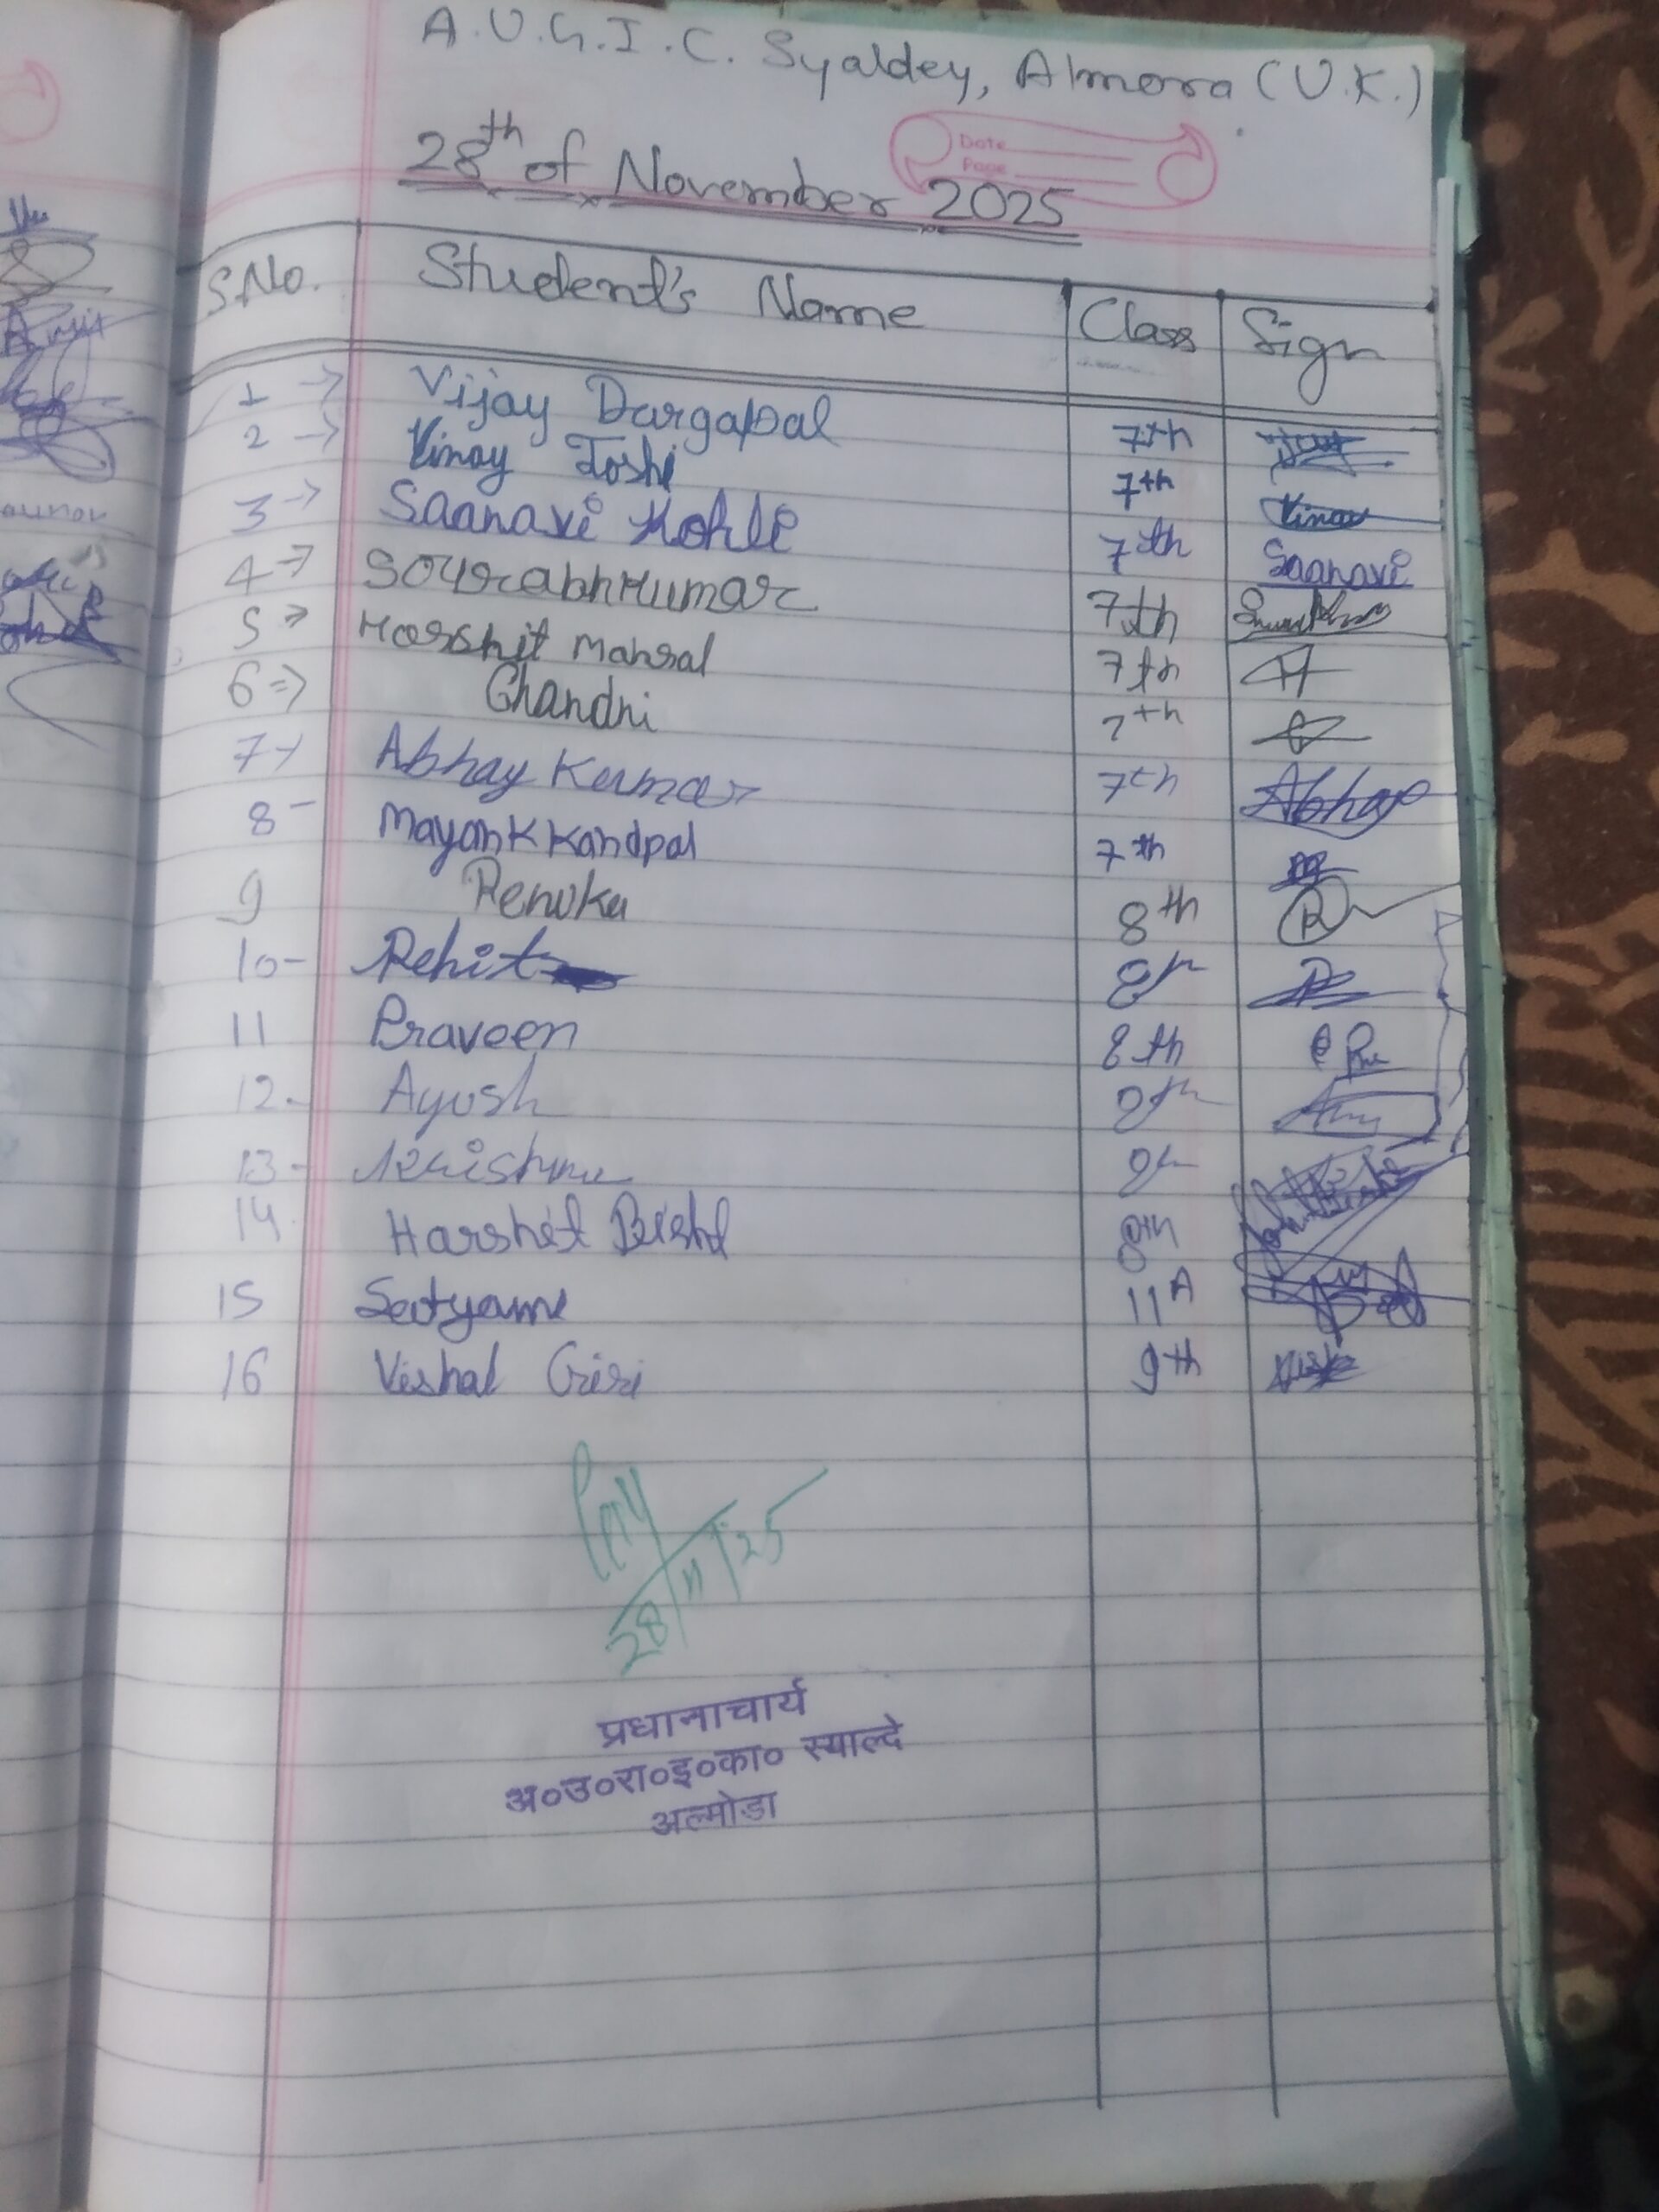 A.U.G.I.C. Syaldey, Almora (U.K.)
Date
Page
28th of November 2025
S.No. Student's Name Class Sign
1 → Vijay Durgapal 7th
2 → Vinay Joshi 7th Vinay
3 → Saanavi Kohli 7th Saanavi
4 → Sourabh Kumar 7th
5 → Harshit Mahral 7th H
6 => Chandni 7th
7 → Abhay Kumar 7th Abhay
8 - Mayank Kandpal 7th
9 Renuka 8th R
10 - Rohit 8th
11 Praveen 8th
12. Ayush 8th
13 - Krishna 8th
14. Harshit Bisht 8th
15 Satyam 11 A
16 Vishal Giri 9th
28/11/25
प्रधानाचार्य
अ०उ०रा०इ०का० स्याल्दे
अल्मोडा